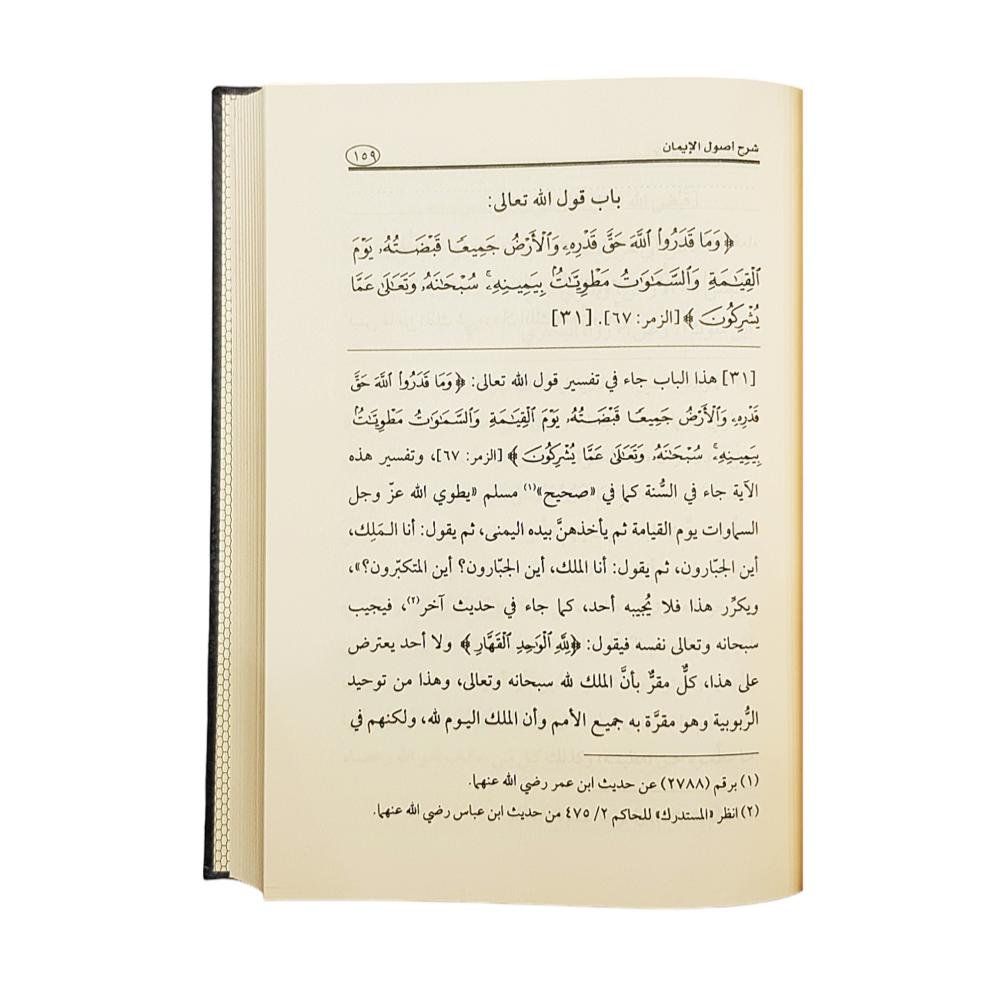 شرح أصول الإيمان
١٥٩
باب قول الله تعالى:
﴿وَمَا قَدَرُوا۟ ٱللَّهَ حَقَّ قَدْرِهِۦ وَٱلْأَرْضُ جَمِيعًا قَبْضَتُهُۥ يَوْمَ
ٱلْقِيَـٰمَةِ وَٱلسَّمَـٰوَٰتُ مَطْوِيَّـٰتٌۢ بِيَمِينِهِۦ ۚ سُبْحَـٰنَهُۥ وَتَعَـٰلَىٰ عَمَّا
يُشْرِكُونَ﴾ [الزمر: ٦٧]. [٣١]
[٣١] هذا الباب جاء في تفسير قول الله تعالى: ﴿وَمَا قَدَرُوا۟ ٱللَّهَ حَقَّ
قَدْرِهِۦ وَٱلْأَرْضُ جَمِيعًا قَبْضَتُهُۥ يَوْمَ ٱلْقِيَـٰمَةِ وَٱلسَّمَـٰوَٰتُ مَطْوِيَّـٰتٌۢ
بِيَمِينِهِۦ ۚ سُبْحَـٰنَهُۥ وَتَعَـٰلَىٰ عَمَّا يُشْرِكُونَ﴾ [الزمر: ٦٧]، وتفسير هذه
الآية جاء في السُّنة كما في «صحيح»(١) مسلم «يطوي الله عزّ وجل
السماوات يوم القيامة ثم يأخذهنَّ بيده اليمنى، ثم يقول: أنا المَلِك،
أين الجبّارون، ثم يقول: أنا الملك، أين الجبّارون؟ أين المتكبّرون؟»،
ويكرِّر هذا فلا يُجيبه أحد، كما جاء في حديث آخر(٢)، فيجيب
سبحانه وتعالى نفسه فيقول: ﴿لِلَّهِ ٱلْوَٰحِدِ ٱلْقَهَّارِ﴾ ولا أحد يعترض
على هذا، كلٌّ مقرٌّ بأنَّ الملك لله سبحانه وتعالى، وهذا من توحيد
الرُّبوبية وهو مقرَّة به جميع الأمم وأن الملك اليوم لله، ولكنهم في
(١) برقم (٢٧٨٨) عن حديث ابن عمر رضي الله عنهما.
(٢) انظر «المستدرك» للحاكم ٢/ ٤٧٥ من حديث ابن عباس رضي الله عنهما.